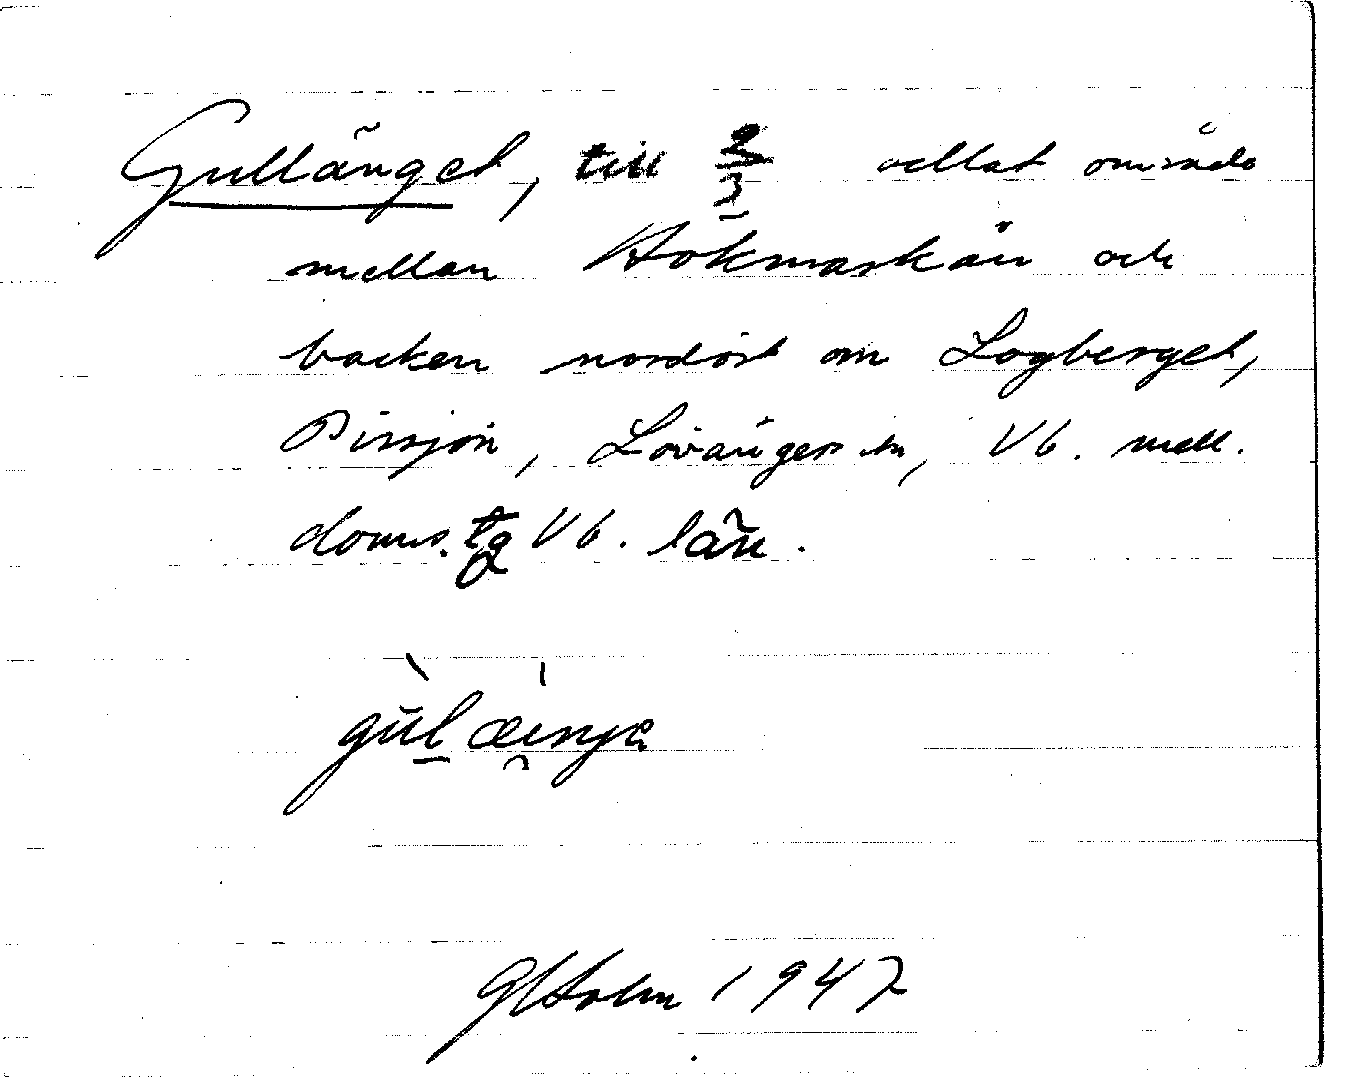 Gullänget, till 2/3 odlat område
mellan Hökmarkån och
backen nordost om Logberget,
Bissjön, Lövångers sn, Vb. mell.
doms. tg Vb. län.
Holm 1947